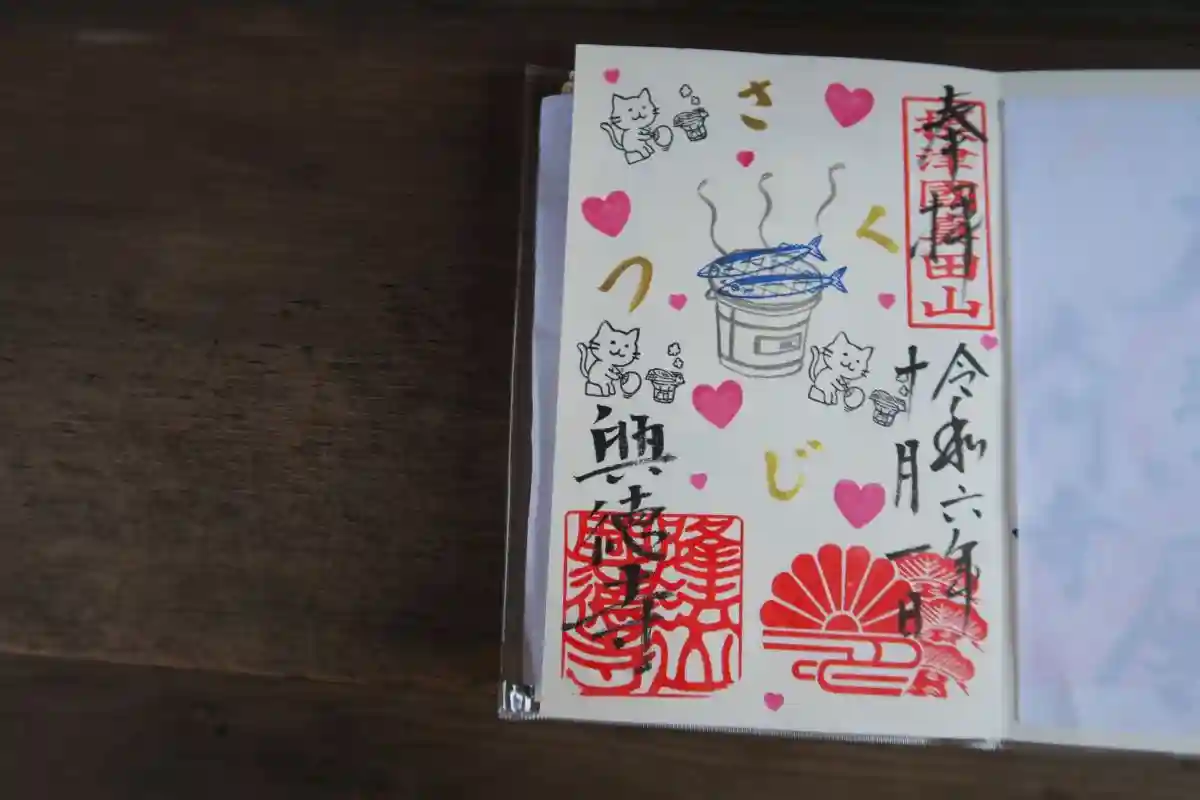 奉拝
摂津國眞田山
令和六年
十月一日
さ
く
つ
じ
興徳寺